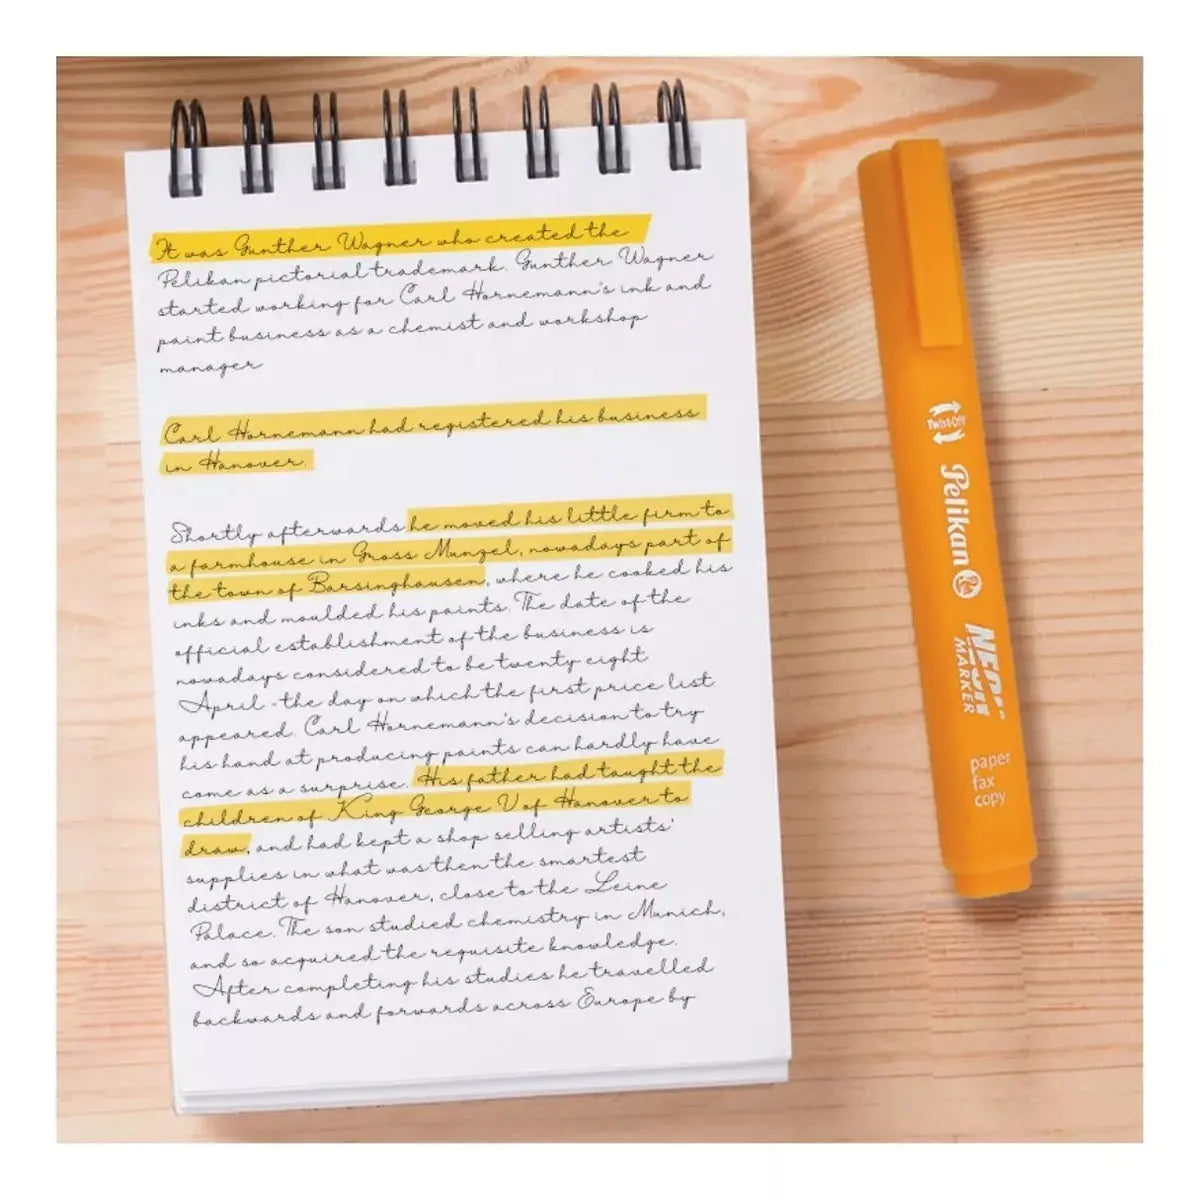 It was Gunther Wagner who created the
Pelikan pictorial trademark. Gunther Wagner
started working for Carl Hornemann's ink and
paint business as a chemist and workshop
manager
Carl Hornemann had registered his business
in Hanover.
Shortly afterwards he moved his little firm to
a farmhouse in Gross Munzel, nowadays part of
the town of Barsinghausen, where he cooked his
inks and moulded his paints. The date of the
official establishment of the business is
nowadays considered to be twenty eight
April - the day on which the first price list
appeared. Carl Hornemann's decision to try
his hand at producing paints can hardly have
come as a surprise. His father had taught the
children of King George V of Hanover to
draw, and had kept a shop selling artists'
supplies in what was then the smartest
district of Hanover, close to the Leine
Palace. The son studied chemistry in Munich,
and so acquired the requisite knowledge.
After completing his studies he travelled
backwards and forwards across Europe by
Twist-Off
Pelikan
MARKER
paper
fax
copy